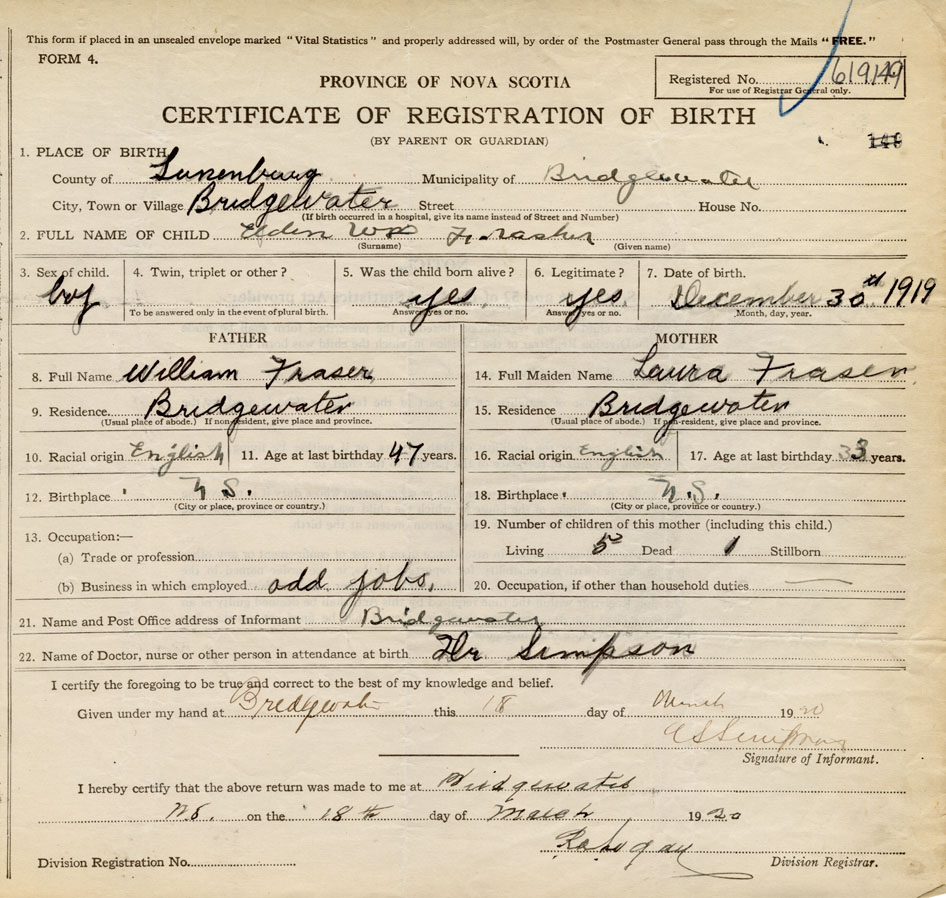 This form if placed in an unsealed envelope marked "Vital Statistics" and properly addressed will, by order of the Postmaster General pass through the Mails "FREE."
FORM 4.
PROVINCE OF NOVA SCOTIA
Registered No. 619149
For use of Registrar General only.
CERTIFICATE OF REGISTRATION OF BIRTH
(BY PARENT OR GUARDIAN)
1. PLACE OF BIRTH
County of Lunenburg Municipality of Bridgewater
City, Town or Village Bridgewater Street House No.
(If birth occurred in a hospital, give its name instead of Street and Number)
2. FULL NAME OF CHILD Elden Wm
(Surname) (Given name)
3. Sex of child. 4. Twin, triplet or other? 5. Was the child born alive? 6. Legitimate? 7. Date of birth.
boy yes yes December 30th 1919
To be answered only in the event of plural birth. Answer yes or no. Answer yes or no. Month, day, year.
FATHER MOTHER
8. Full Name William Fraser 14. Full Maiden Name Laura Fraser
9. Residence. Bridgewater 15. Residence Bridgewater
(Usual place of abode.) If non-resident, give place and province. (Usual place of abode.) If non-resident, give place and province.
10. Racial origin English 11. Age at last birthday 47 years. 16. Racial origin English 17. Age at last birthday 33 years.
12. Birthplace N S. 18. Birthplace N.S.
(City or place, province or country.) (City or place, province or country.)
19. Number of children of this mother (including this child.)
13. Occupation:—
(a) Trade or profession Living 5 Dead 1 Stillborn
(b) Business in which employed odd jobs. 20. Occupation, if other than household duties
21. Name and Post Office address of Informant Bridgewater
22. Name of Doctor, nurse or other person in attendance at birth Dr Simpson
I certify the foregoing to be true and correct to the best of my knowledge and belief.
Given under my hand at Bridgewater this 18 day of March 1920
Simpson
Signature of Informant.
I hereby certify that the above return was made to me at Bridgewater
N.S. on the 18th day of March 1920
Division Registration No. Division Registrar.